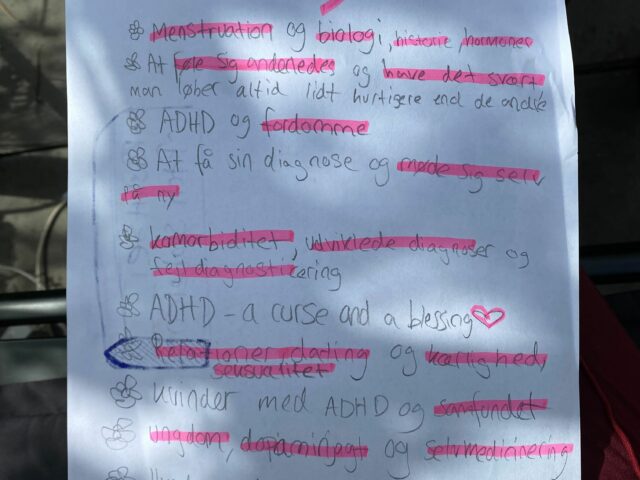 Menstruation og biologi, historie, hormoner
At føle sig anderledes og have det svært
man løber altid lidt hurtigere end de andre
ADHD og fordomme
At få sin diagnose og møde sig selv
på ny
komorbiditet, udviklede diagnoser og
fejldiagnosticering
ADHD - a curse and a blessing
Relationer, dating og kærlighed,
seksualitet
Kvinder med ADHD og samfundet
Ungdom, dopaminjagt og selvmedicinering